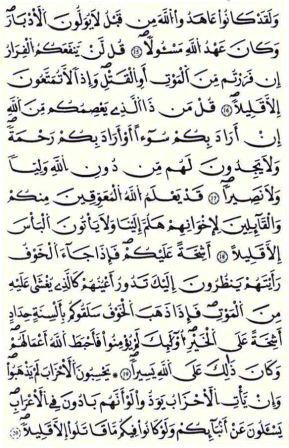 وَلَقَدْ كَانُوا۟ عَٰهَدُوا۟ ٱللَّهَ مِن قَبْلُ لَا يُوَلُّونَ ٱلْأَدْبَٰرَ
وَكَانَ عَهْدُ ٱللَّهِ مَسْـُٔولًا ۝١٥ قُل لَّن يَنفَعَكُمُ ٱلْفِرَارُ
إِن فَرَرْتُم مِّنَ ٱلْمَوْتِ أَوِ ٱلْقَتْلِ وَإِذًا لَّا تُمَتَّعُونَ
إِلَّا قَلِيلًا ۝١٦ قُلْ مَن ذَا ٱلَّذِى يَعْصِمُكُم مِّنَ ٱللَّهِ
إِنْ أَرَادَ بِكُمْ سُوٓءًا أَوْ أَرَادَ بِكُمْ رَحْمَةً
وَلَا يَجِدُونَ لَهُم مِّن دُونِ ٱللَّهِ وَلِيًّا
وَلَا نَصِيرًا ۝١٧ قَدْ يَعْلَمُ ٱللَّهُ ٱلْمُعَوِّقِينَ مِنكُمْ
وَٱلْقَآئِلِينَ لِإِخْوَٰنِهِمْ هَلُمَّ إِلَيْنَا وَلَا يَأْتُونَ ٱلْبَأْسَ
إِلَّا قَلِيلًا ۝١٨ أَشِحَّةً عَلَيْكُمْ فَإِذَا جَآءَ ٱلْخَوْفُ
رَأَيْتَهُمْ يَنظُرُونَ إِلَيْكَ تَدُورُ أَعْيُنُهُمْ كَٱلَّذِى يُغْشَىٰ عَلَيْهِ
مِنَ ٱلْمَوْتِ فَإِذَا ذَهَبَ ٱلْخَوْفُ سَلَقُوكُم بِأَلْسِنَةٍ حِدَادٍ
أَشِحَّةً عَلَى ٱلْخَيْرِ أُو۟لَٰٓئِكَ لَمْ يُؤْمِنُوا۟ فَأَحْبَطَ ٱللَّهُ أَعْمَٰلَهُمْ
وَكَانَ ذَٰلِكَ عَلَى ٱللَّهِ يَسِيرًا ۝١٩ يَحْسَبُونَ ٱلْأَحْزَابَ لَمْ يَذْهَبُوا۟
وَإِن يَأْتِ ٱلْأَحْزَابُ يَوَدُّوا۟ لَوْ أَنَّهُم بَادُونَ فِى ٱلْأَعْرَابِ
يَسْـَٔلُونَ عَنْ أَنۢبَآئِكُمْ وَلَوْ كَانُوا۟ فِيكُم مَّا قَٰتَلُوٓا۟ إِلَّا قَلِيلًا ۝٢٠